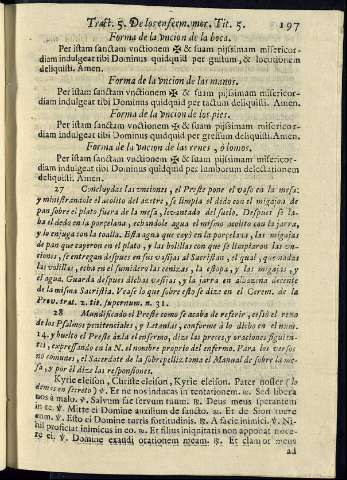 Tract. 5. De los enferm. mor. Tit. 5. 197
Forma de la vncion de la boca.
Per istam sanctam vnctionem ✠ & suam pijssimam misericor-
diam indulgeat tibi Dominus quidquid per gustum, & locutionem
deliquisti. Amen.
Forma de la vncion de las manos.
Per istam sanctam vnctionem ✠ & suam pijssimam misericor-
diam indulgeat tibi Dominus quidquid per tactum deliquisti. Amen.
Forma de la vncion de los pies.
Per istam sanctam vnctionem ✠ & suam pijssimam misericor-
diam indulgeat tibi Dominus quidquid per gressum deliquisti. Amen.
Forma de la vncion de las renes, ò lomos.
Per istam sanctam vnctionem ✠ & suam pijssimam misericor-
diam indulgeat tibi Dominus quidquid per lumborum delectationem
deliquisti. Amen.
27 Concluydas las vnciones, el Preste pone el vaso en la mesa:
y ministrandole el acolito del azetre, se limpia el dedo con el migajon de
pan sobre el plato fuera de la mesa, levantado del suelo. Despues se la-
ba el dedo en la porcelana, echandole agua el mismo acolito con la jarra,
y lo enjuga con la toalla. Esta agua que cayò en la porcelana, las migajas
de pan que cayeron en el plato, y las bolillas con que se limpiaron las vn-
ciones, se entregan despues en sus vasijas al Sacristan, el qual, quemadas
las bolillas, echa en el sumidero las cenizas, la estopa, y las migajas, y
el agua. Guarda despues dichas vasijas, y la jarra en alhazena decente
de la misma Sacristia. Vease lo que sobre esto se dize en el Cerem. de la
Prov. trat. 2. tit. supernum. n. 31.
28 Mundificado el Preste como se acaba de referir, cessò el rezo
de los Psalmos penitenciales, y Letanias, conforme à lo dicho en el num.
24. y buelto el Preste àzia el enfermo, dize las preces, y oraciones siguien-
tes, expressando en la N. el nombre proprio del enfermo. Para los versos
no comunes, el Sacerdote de la sobrepelliz toma el Manual de sobre la me-
sa, y por èl dize las responsiones.
Kyrie eleison, Christe eleison, Kyrie eleison. Pater noster (lo
demas en secreto) ℣. Et ne nos inducas in tentationem. ℟. Sed libera
nos à malo. ℣. Salvum fac servum tuum. ℟. Deus meus sperantem
in te. ℣. Mitte ei Domine auxilium de sancto. ℟. Et de Sion tuere
eum. ℣. Esto ei Domine turris fortitudinis. ℟. A facie inimici. ℣. Ni-
hil proficiat inimicus in eo. ℟. Et filius iniquitatis non apponat noce-
re ei. ℣. Domine exaudi orationem meam. ℟. Et clamor meus
ad